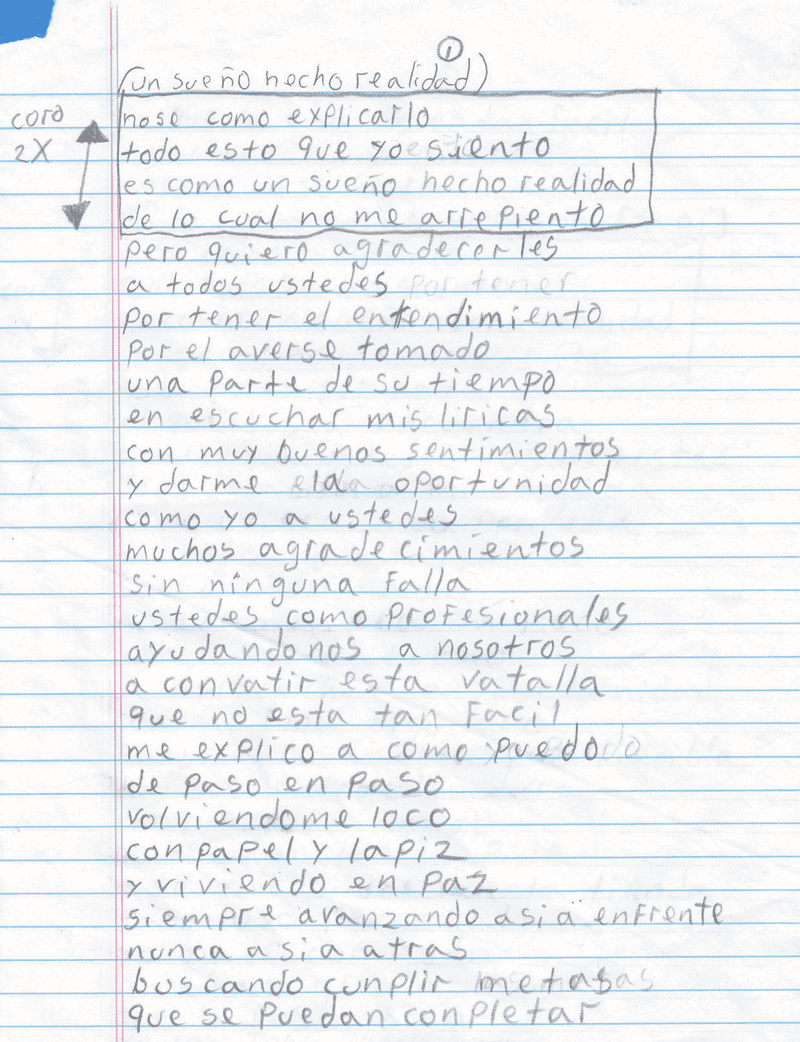 1
(un sueño hecho realidad)
coro
2X
nose como explicarlo
todo esto que yo siento
es como un sueño hecho realidad
de lo cual no me arrepiento
pero quiero agradecerles
a todos ustedes
por tener el entendimiento
por el averse tomado
una parte de su tiempo
en escuchar mis liricas
con muy buenos sentimientos
y darme la oportunidad
como yo a ustedes
muchos agradecimientos
sin ninguna falla
ustedes como profesionales
ayudandonos a nosotros
a convatir esta vatalla
que no esta tan facil
me explico a como puedo
de paso en paso
volviendome loco
con papel y lapiz
y viviendo en paz
siempre avanzando asia enfrente
nunca asia atras
buscando cunplir metas
que se puedan conpletar